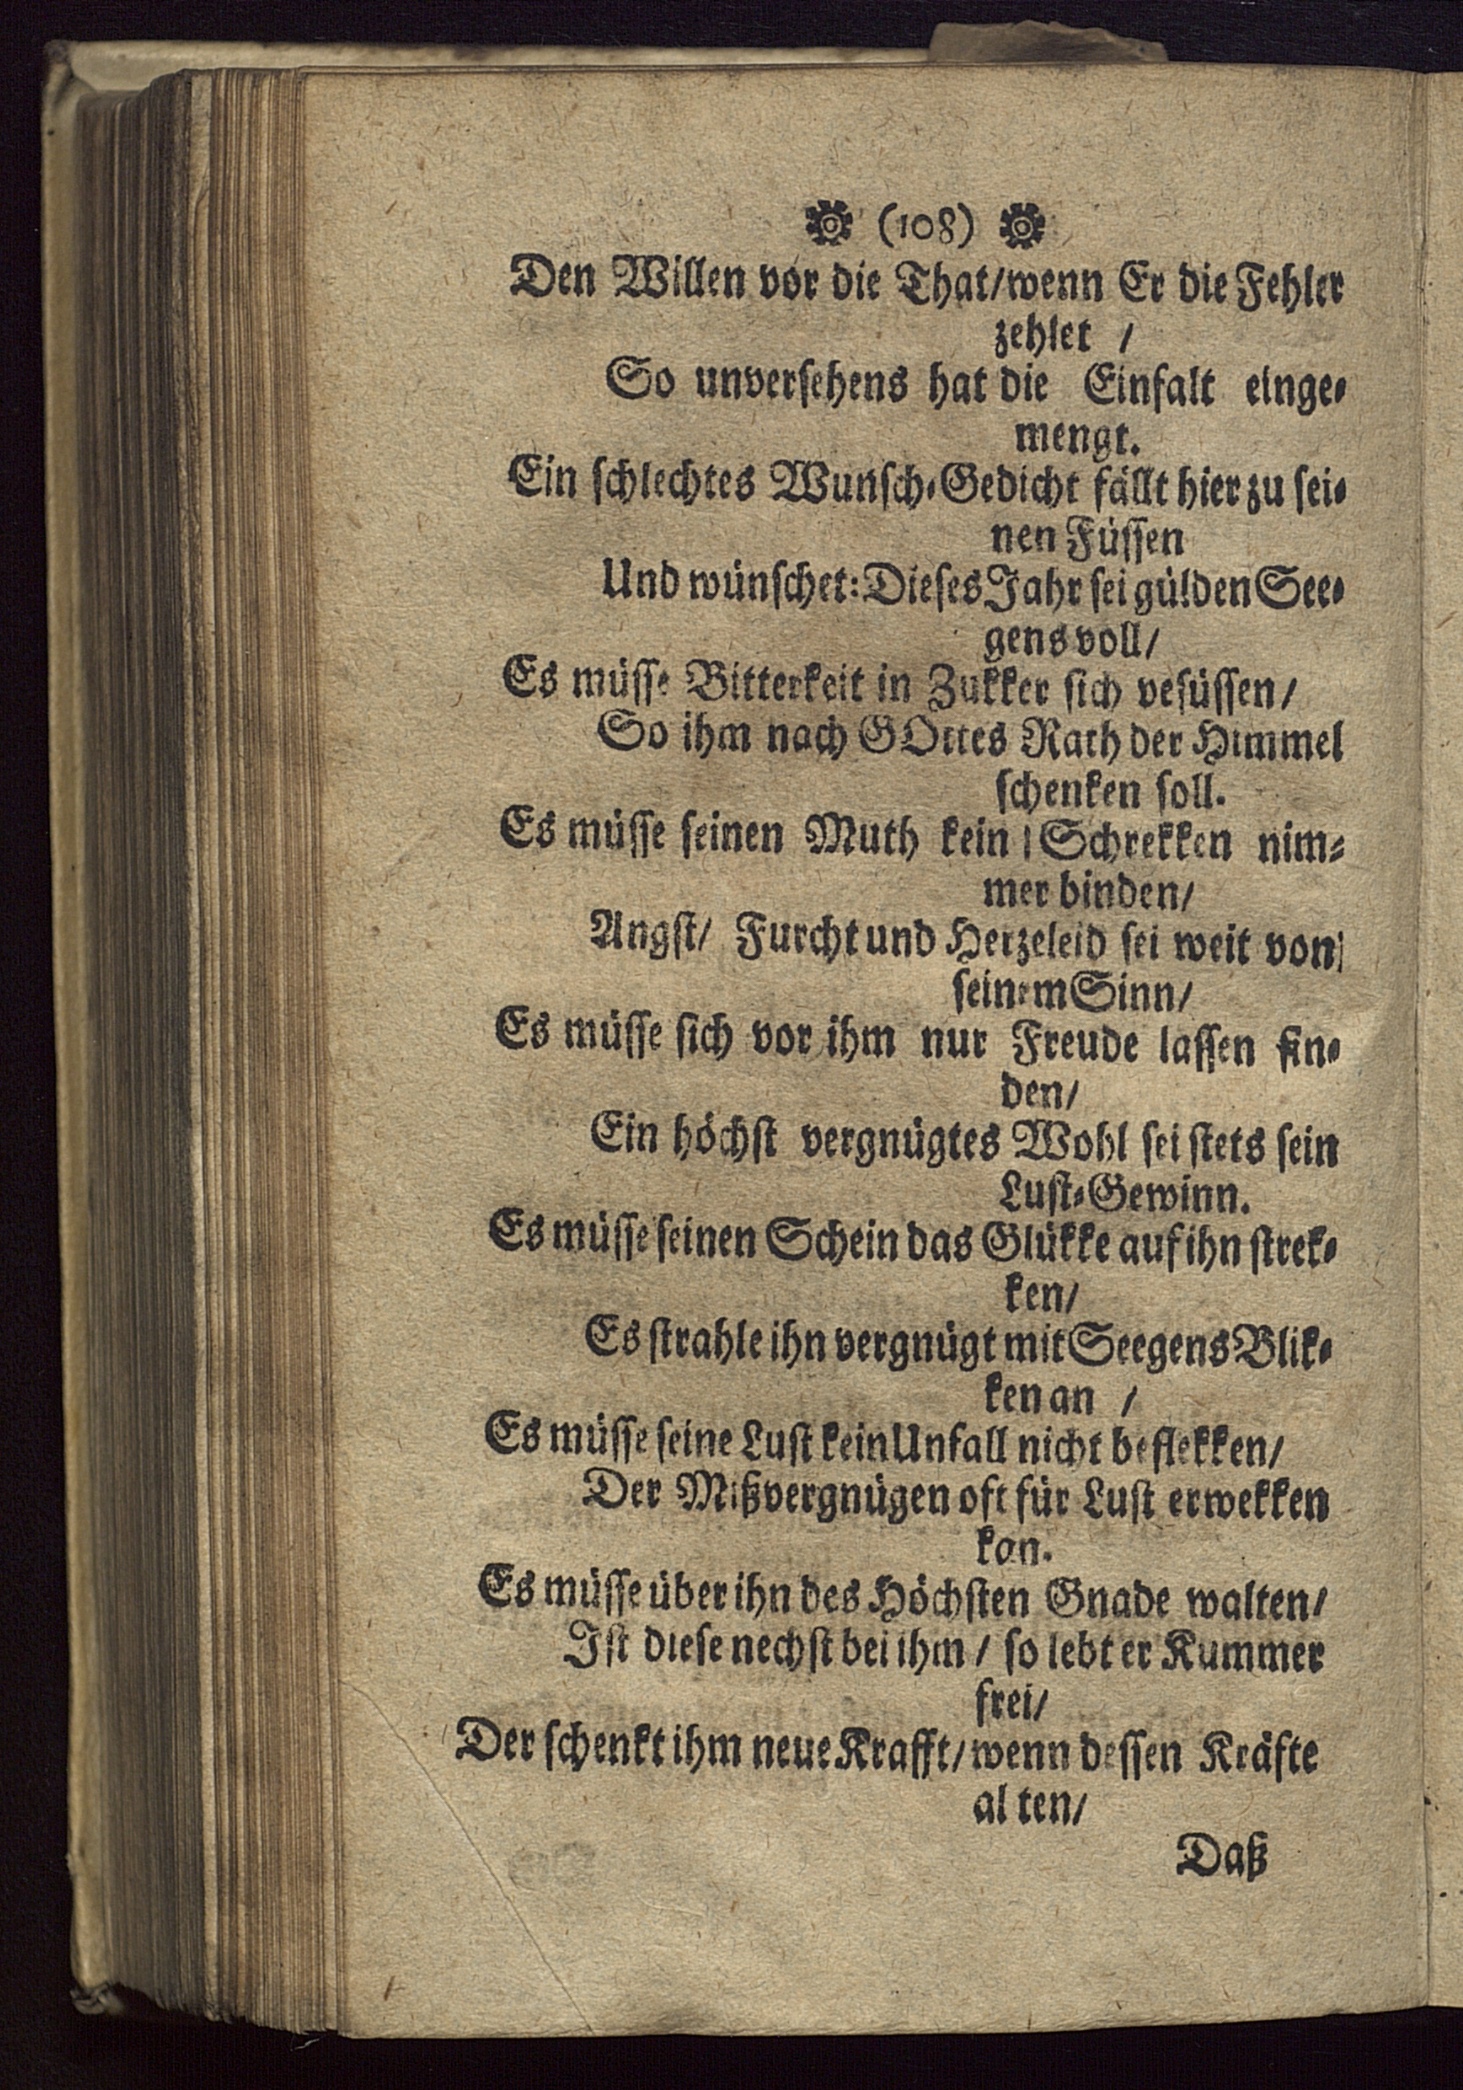 (108)
Den Willen vor die That/wenn Er die Fehler
zehlet /
So unversehens hat die Einfalt einge-
mengt.
Ein schlechtes Wunsch-Gedicht fällt hier zu sei-
nen Füssen
Und wünschet: Dieses Jahr sei gülden See-
gens voll/
Es müsse Bitterkeit in Zukker sich vesüssen/
So ihm nach GOttes Rath der Himmel
schenken soll.
Es müsse seinen Muth kein Schrekken nim-
mer binden/
Angst/ Furcht und Herzeleid sei weit von
seinem Sinn/
Es müsse sich vor ihm nur Freude lassen fin-
den/
Ein höchst vergnügtes Wohl sei stets sein
Lust-Gewinn.
Es müsse seinen Schein das Glükke auf ihn strek-
ken/
Es strahle ihn vergnügt mit Seegens Blik-
ken an /
Es müsse seine Lust kein Unfall nicht beflekken/
Der Mißvergnügen oft für Lust erwekken
kan.
Es müsse über ihn des Höchsten Gnade walten/
Ist diese nechst bei ihm / so lebt er Kummer
frei/
Der schenkt ihm neue Krafft/wenn dessen Kräfte
al ten/
Daß